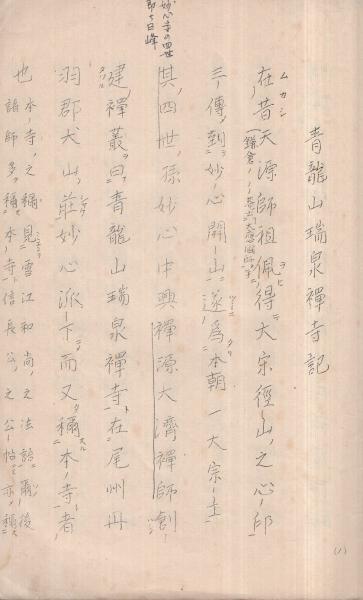 青龍山瑞泉禪寺記
在昔天源師祖佩得大宋徑山之心印
ムカシ
三傳到妙心開山遂爲本朝一大宗主
其四世孫妙心中興禪源大濟禪師創
妙心寺の四世
即チ日峰
建禪叢曰青龍山瑞泉禪寺在尾州丹
羽郡犬山莊妙心派下而又稱本寺者
也 本寺之稱見雪江和尚之法語爾後
諸師多稱本寺信長公之公帖亦稱
(1)